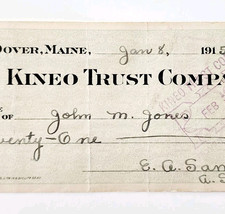 DOVER, MAINE, Jan 8, 1915
KINEO TRUST COMPA
OF John M. Jones
wenty-One
KINEO TRUST CO
FEB
E. A. San
A. S